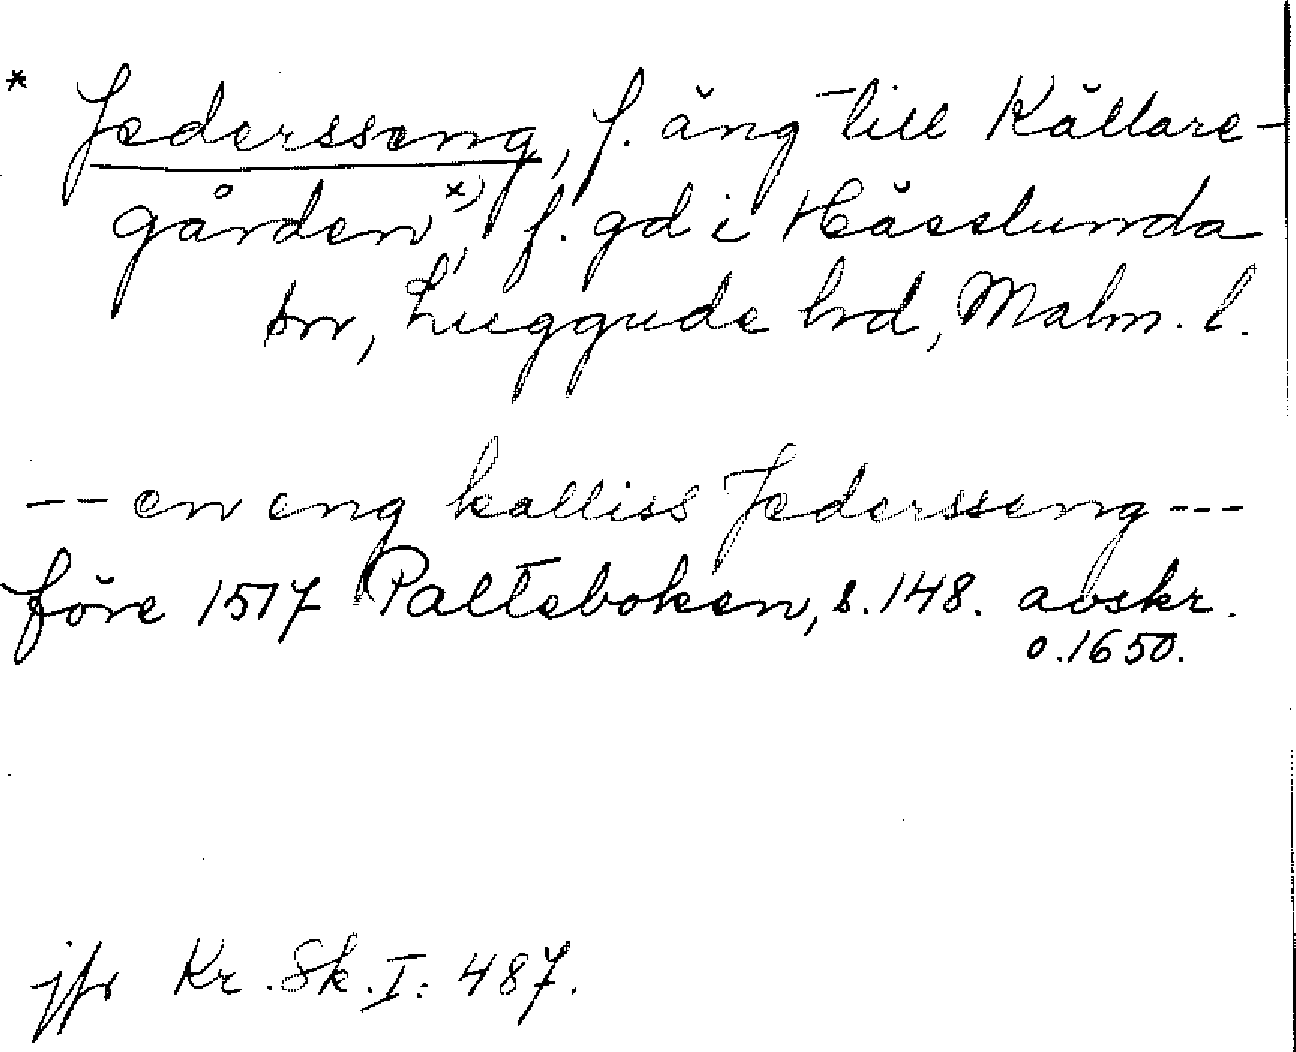 * Jedersseng, f. äng till Källare-
gården *), f. gd i Hässlunda
sn, Luggude hd, Malm. l.
-- en eng kalliss Jedersseng ---
före 1517 Palteboken, s. 148. avskr.
o. 1650.
jfr Kr. Sk. I: 487.